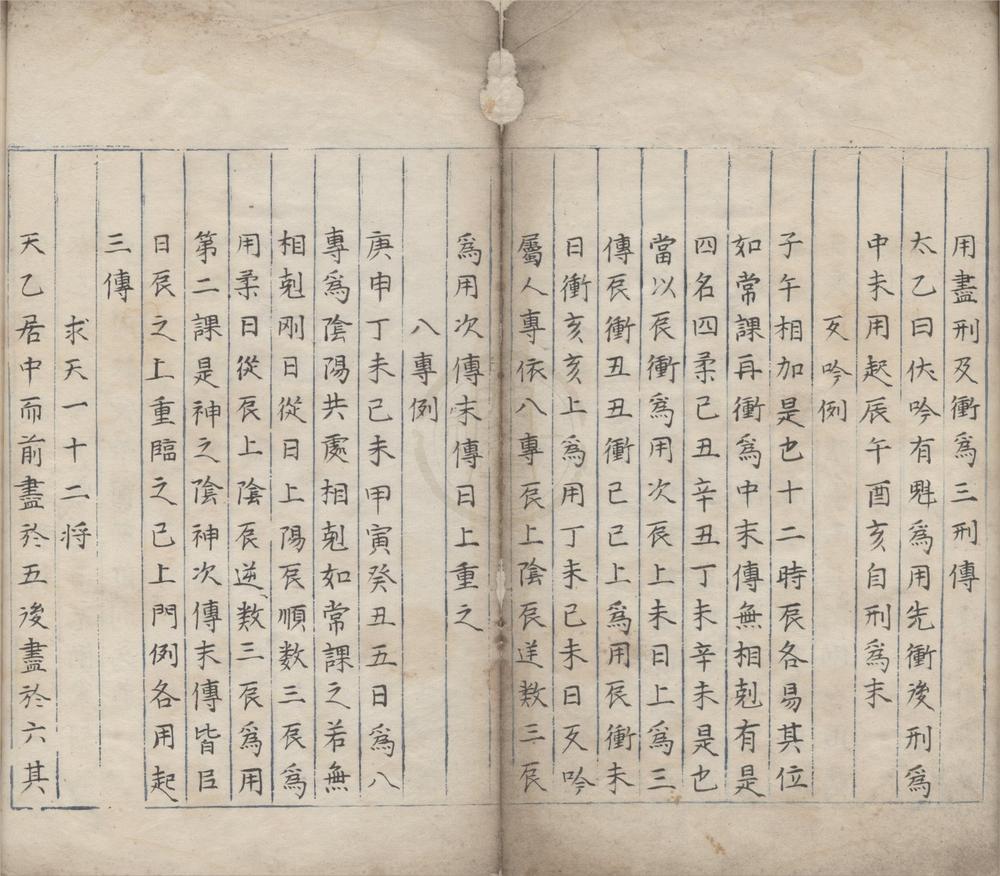 用盡刑及衝爲三刑傳
太乙曰伏吟有尅爲用先衝後刑爲
中末用起辰午酉亥自刑爲末
反吟例
子午相加是也十二時辰各易其位
如常課再衝爲中末傳無相尅有是
四名四柔己丑辛丑丁未辛未是也
當以辰衝爲用次辰上末日上爲三
傳辰衝丑丑衝己己上爲用辰衝未
日衝亥亥上爲用丁未己未日反吟
屬人專依八專辰上陰辰逆数三辰
爲用次傳末傳日上重之
八專例
庚申丁未己未甲寅癸丑五日爲八
專爲陰陽共處相尅如常課之若無
相尅剛日從日上陽辰順数三辰爲
用柔日從辰上陰辰逆数三辰爲用
第二課是神之陰神次傳末傳皆臣
日辰之上重臨之己上門例各用起
三傳
求天一十二将
天乙居中而前盡於五後盡於六其